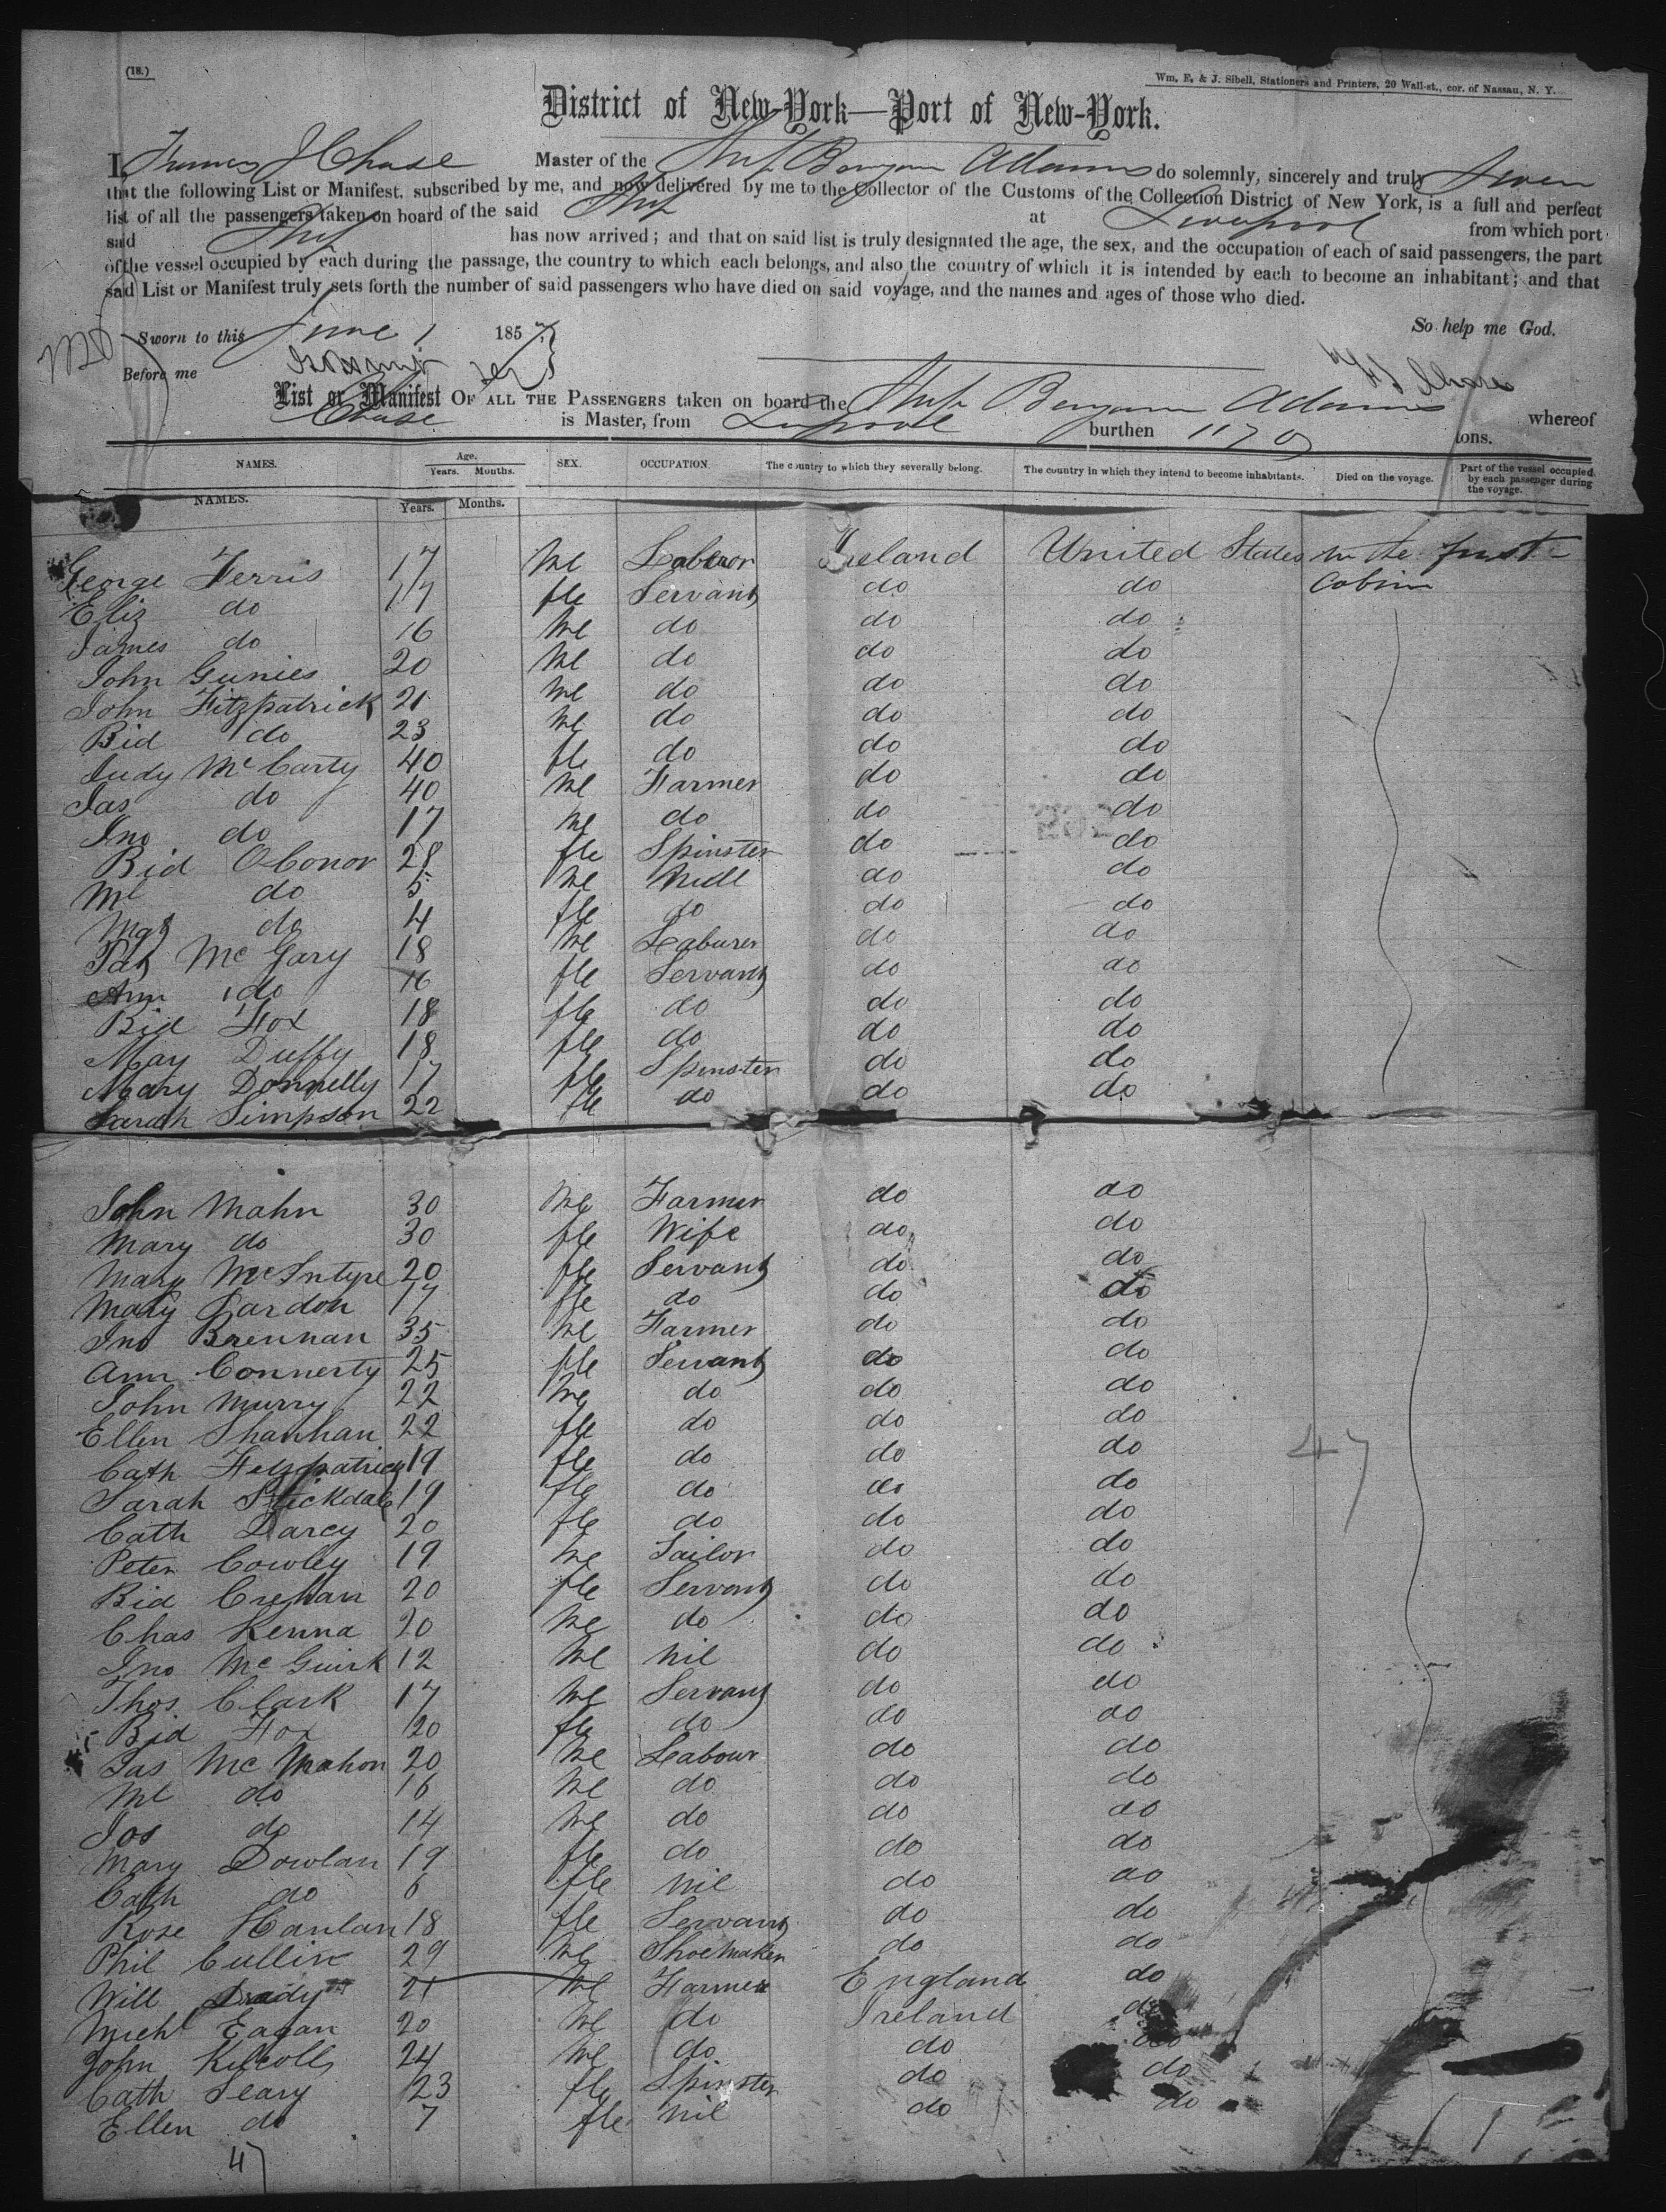 (18.)
Wm. E. & J. Sibell, Stationers and Printers, 20 Wall-st., cor. of Nassau, N. Y.
District of New-York—Port of New-York.
I, Chase Master of the Ship Adams do solemnly, sincerely and truly
that the following List or Manifest, subscribed by me, and now delivered by me to the Collector of the Customs of the Collection District of New York, is a full and perfect
list of all the passengers taken on board of the said Ship at Liverpool from which port
said Ship has now arrived; and that on said list is truly designated the age, the sex, and the occupation of each of said passengers, the part
of the vessel occupied by each during the passage, the country to which each belongs, and also the country of which it is intended by each to become an inhabitant; and that
said List or Manifest truly sets forth the number of said passengers who have died on said voyage, and the names and ages of those who died.
So help me God.
Sworn to this June 1 1857
Before me
Chase
List or Manifest OF ALL THE PASSENGERS taken on board the Ship Adams whereof
Chase is Master, from Liverpool burthen tons.
NAMES. Age. Years. Months. SEX. OCCUPATION. The country to which they severally belong. The country in which they intend to become inhabitants. Died on the voyage. Part of the vessel occupied by each passenger during the voyage.
NAMES. Years. Months.
George Ferris 17 Me Labouor Ireland United States in the
Eliz do 17 fle Servant do do Cabin
James do 16 Me do do do
John Gunies 20 Me do do do
John Fitzpatrick 21 Me do do do
Bid do 23 Me do do do
Judy McCarty 40 fle do do do
Jas do 40 Me Farmer do do
Jno do 17 Me do do do
Bid OConor 28 fle Spinster do do
Ml do 5 Me do do
Mgt do 4 fle do do do
Pat McGary 18 Me Laburer do do
Ann do 16 fle Servant do do
Bid Fox 18 fle do do do
May Duffy 18 fle do do do
Mary Donnelly 17 fle Spinster do do
Sarah Simpson 22 fle do do do
John Mahn 30 Me Farmer do do
Mary do 30 fle Wife do do
Mary McIntyre 20 fle Servant do do
Mary Gardon 17 fle do do do
Jno Brennan 35 Me Farmer do do
Ann Connerty 25 fle Servant do do
John Murry 22 Me do do do
Ellen Shanhan 22 fle do do do
Cath Fitzpatrick 19 fle do do do
Sarah Stickdale 19 fle do do do
Cath Darcy 20 fle do do do
Peter Cowley 19 Me Tailor do do
Bid Crehan 20 fle Servant do do
Chas Kenna 20 Me do do do
Jno McGuirk 12 Me nil do do
Thos Clark 17 Me Servant do do
Bid Fox 20 fle do do do
Jas McMahon 20 Me Labour do do
Ml do 16 Me do do do
Jos do 14 Me do do do
Mary Dowlan 19 fle do do do
Cath do 6 fle nil do do
Rose Hanlan 18 fle Servant do do
Phil Cullin 29 Me Shoemaker do do
Will 21 Me Farmer England do
Michl Eagan 20 Me do Ireland do
John 24 Me do do do
Cath Leary 23 fle Spinster do do
Ellen do 7 fle nil do do
47
47